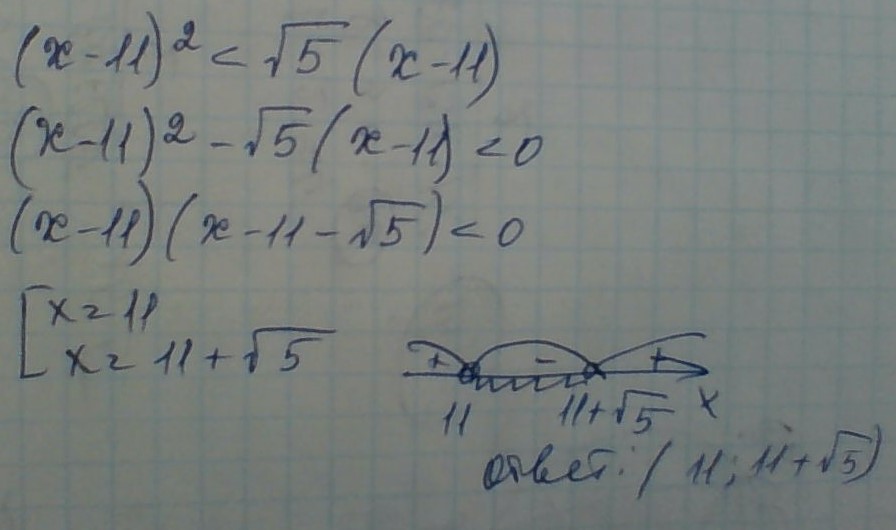 (x-11)² < √5 (x-11)
(x-11)² - √5 (x-11) < 0
(x-11)(x-11-√5) < 0
[ x = 11
x = 11 + √5
+ - +
11 11+√5 x
ответ: (11; 11+√5)